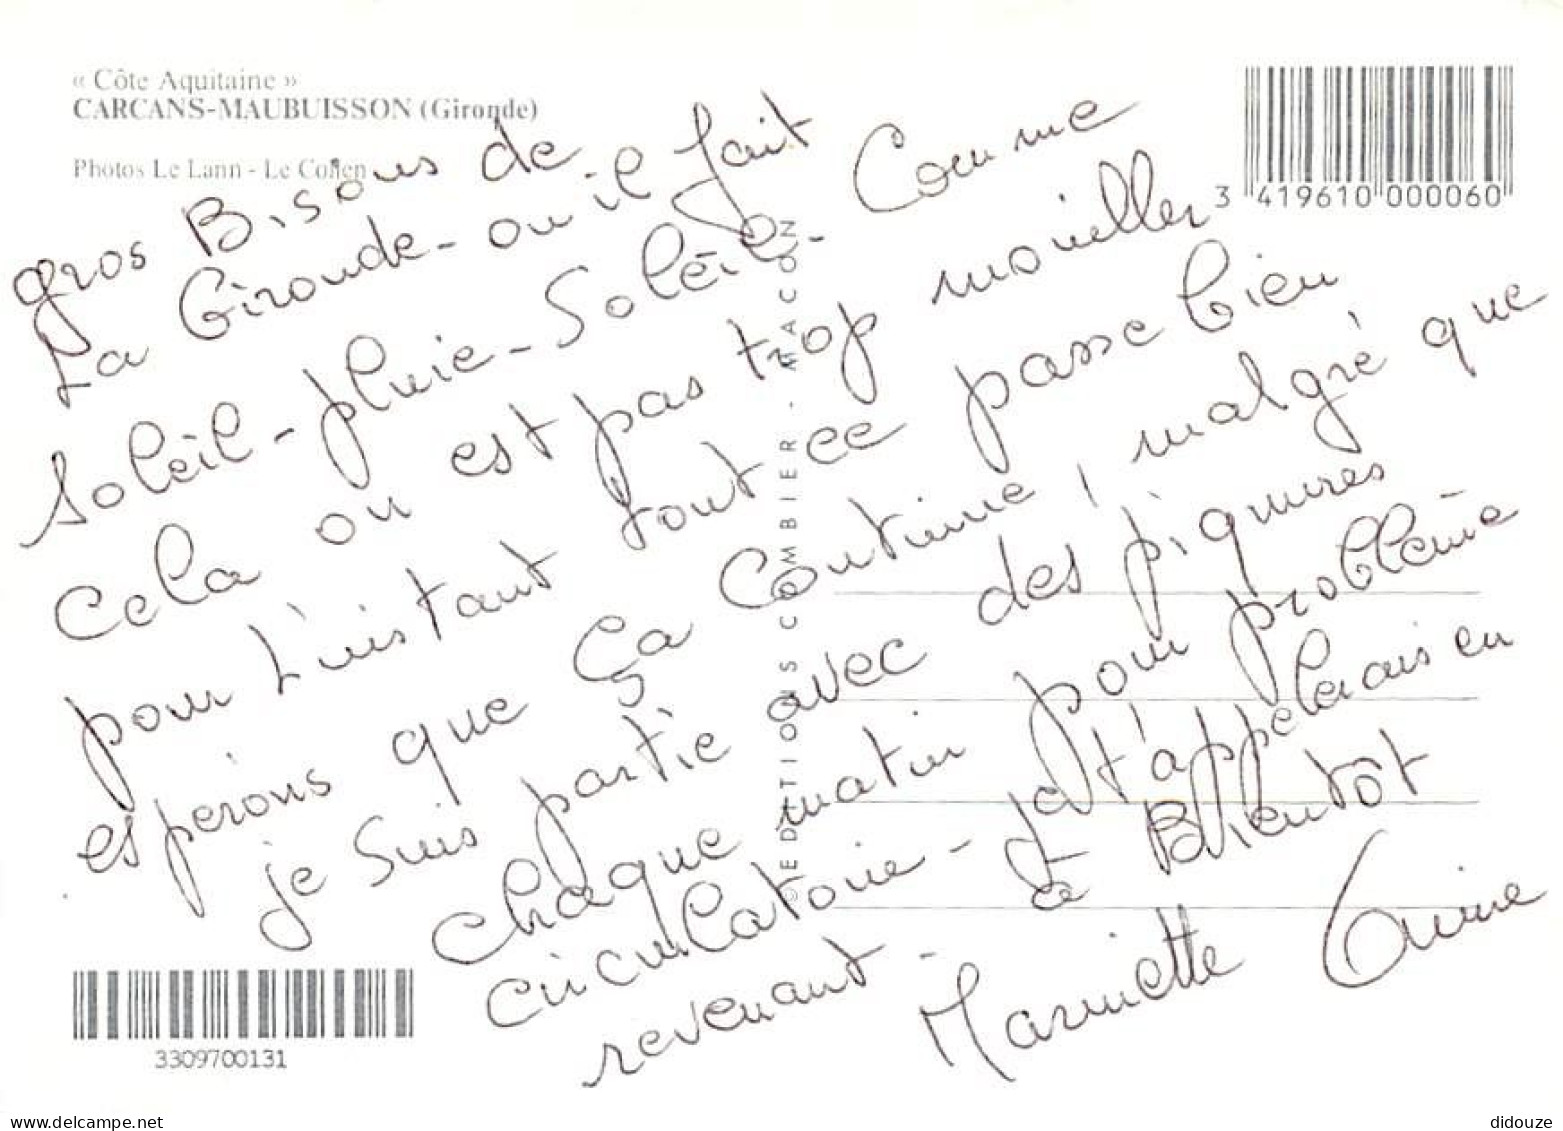 « Côte Aquitaine »
CARCANS-MAUBUISSON (Gironde)
Photos Le Lann - Le Collen
3 419610 000060
gros Bisous de
La Gironde - ou il fait
Soleil - pluie - Soleil - Comme
Cela on est pas trop mouiller
pour L'instant tout ce passe bien
esperons que ça continue, malgré que
je suis partie avec des piqures
chaque matin pour problème
circulatoire - Je t'appelerais en
revenant - a Bientôt
Mariette
©EDITIONS COMBIER - MACON
3309700131
didouze